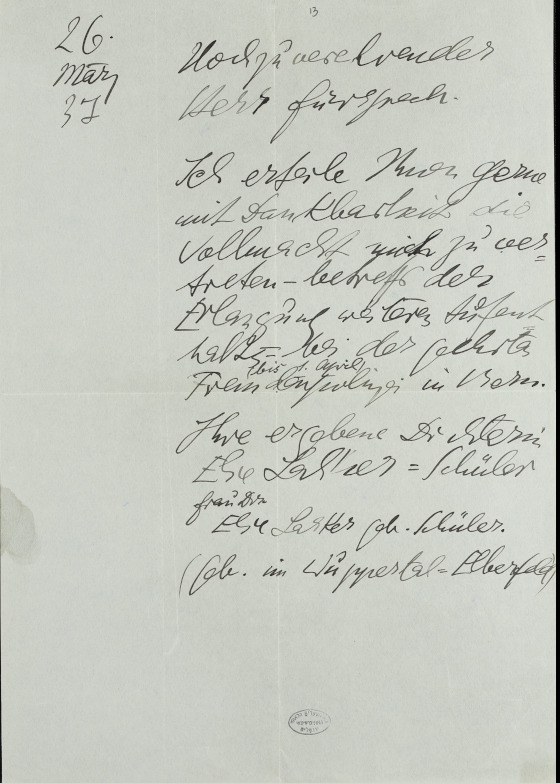 13
26.
März
37
Hochzuverehrender
Herr Fürsprech.
Ich erteile Ihnen gerne
mit Dankbarkeit die
Vollmacht mich zu ver=
treten – betreffs der
Erlangung weiteren Aufent
halts – bei der geehrten
(bis 1. April)
Fremdenpolizei in Bern.
Ihre ergebene Dichterin
Else Lasker=Schüler
Frau Dr
Else Lasker geb. Schüler.
(Geb. in Wuppertal=Elberfeld)